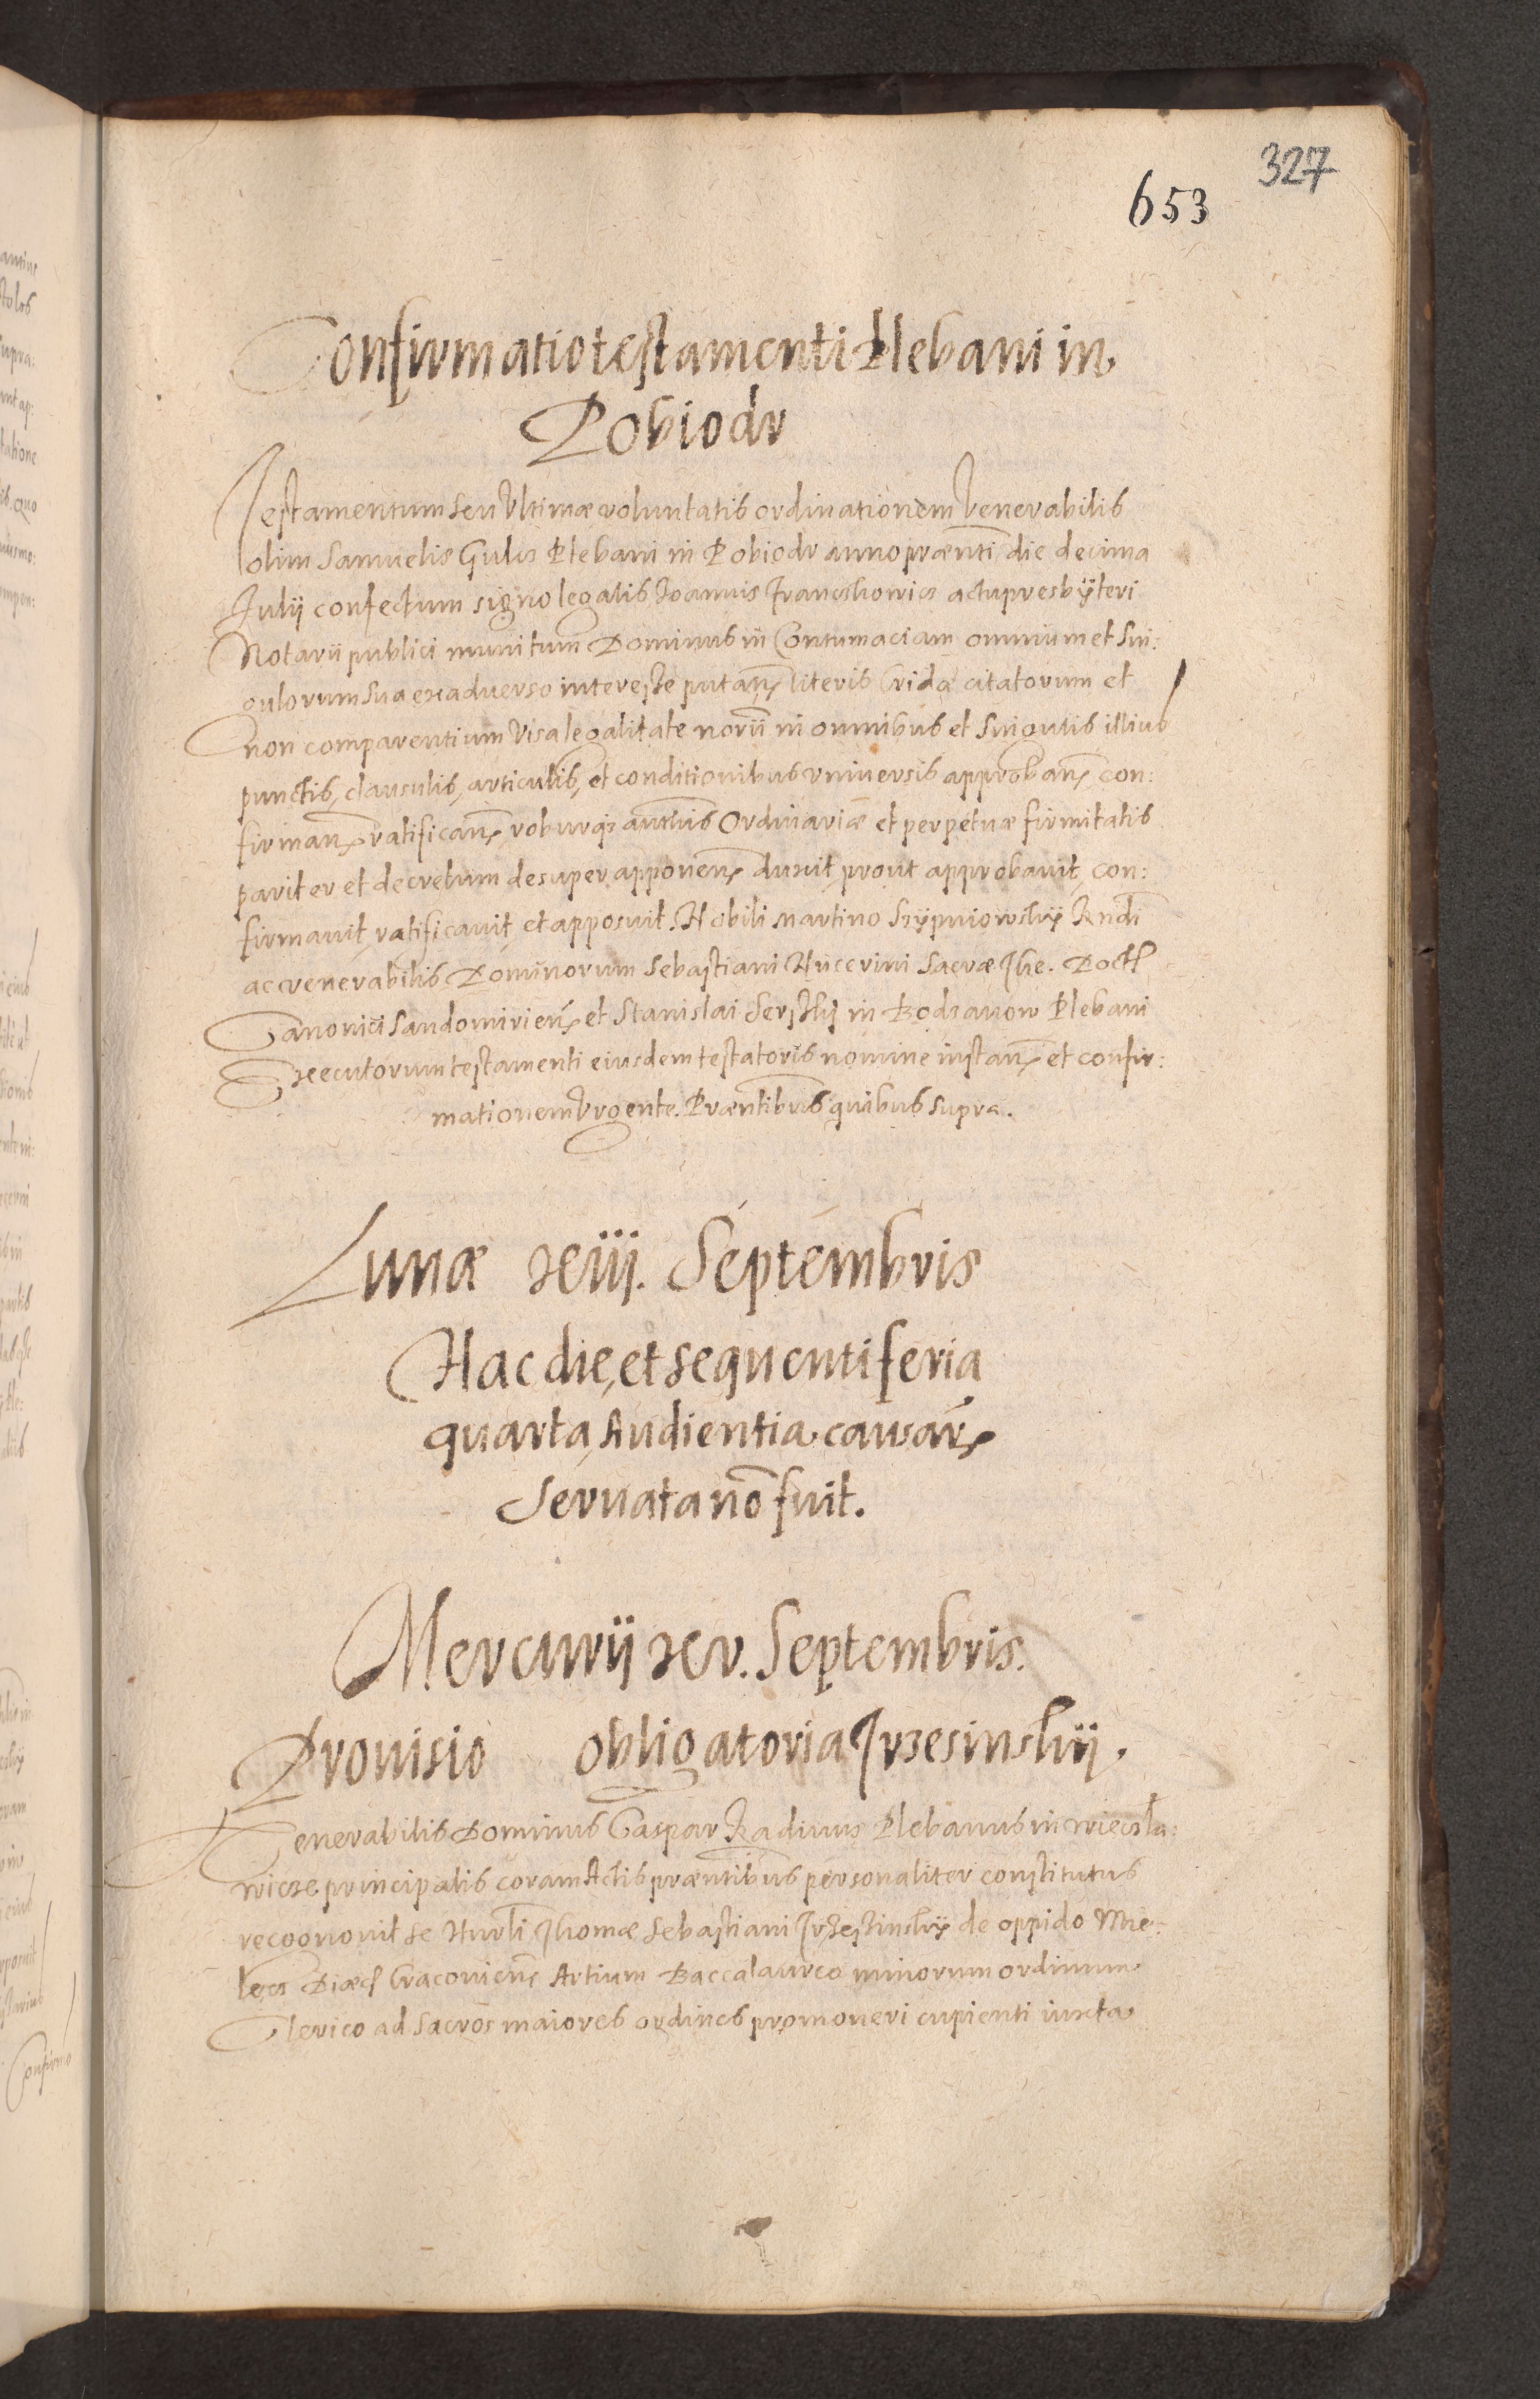 327
653
Confirmatio testamenti Plebani in
Pobiodr
Testamentum seu Ultimæ voluntatis ordinationem Venerabilis
olim Samuelis Gulcz Plebani in Pobiodr anno prænti die decima
Julij confectum signo legalis Joannis Franckowicz actu presbÿteri
Notarii publici munitum Dominus in Contumaciam omnium et sin:
gulorum sua ex adverso interesse putan̄ literis Cridæ citatorum et
non comparentium Visa legalitate norii in omnibus et singulis illius
punctis, clausulis, articulis, et conditionibus universis approban̄ con:
firman̄ ratifican̄ roburq̃ authtis Ordinariæ et perpetuæ firmitatis
pariter et decretum desuper apponen̄ duxit prout approbavit, con:
firmavit, ratificavit, et apposuit. Nobili Martino Szÿpniowskÿ Rndi
ac venerabilis Dominorum Sebastiani Nuccrini Sacræ The. Doct.
Canonici Sandomirien̄ et Stanislai Serskÿ in Bodzanow Plebani
Executorum testamenti eiusdem testatoris nomine instan̄ et confir:
mationem Urgente. Præntibus quibus supra.
Lunæ xiij. Septembris
Hac die, et sequenti feria
quarta Audientia causar̄
Servata nō fuit.
Mercurij xv. Septembris.
Provisio obligatoria Trzesinskij.
Venerabilis Dominus Caspar Radinus Plebanus in Wieczla:
wicze principalis coram Actis præntibus personaliter constitutus
recognovit se Hurli Thomæ Sebastiani Trzesinskÿ de oppido Mie:
lecz Diæc. Cracovien̄ Artium Baccalaureo minorum ordinum
Clerico ad Sacros maiores ordines promoveri cupienti iuxta